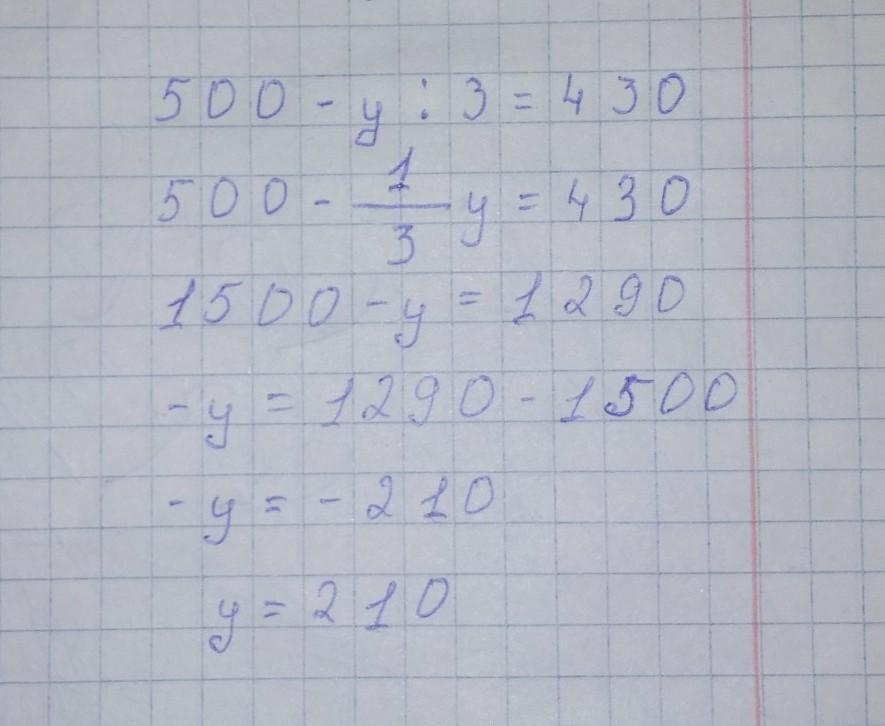 500 - y : 3 = 430
500 - 1/3 y = 430
1500 - y = 1290
- y = 1290 - 1500
- y = - 210
y = 210